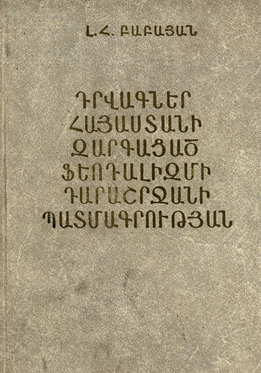 Լ.Հ. ԲԱԲԱՅԱՆ
ԴՐՎԱԳՆԵՐ
ՀԱՅԱՍՏԱՆԻ
ԶԱՐԳԱՑԱԾ
ՖԵՈԴԱԼԻԶՄԻ
ԴԱՐԱՇՐՋԱՆԻ
ՊԱՏՄԱԳՐՈՒԹՅԱՆ